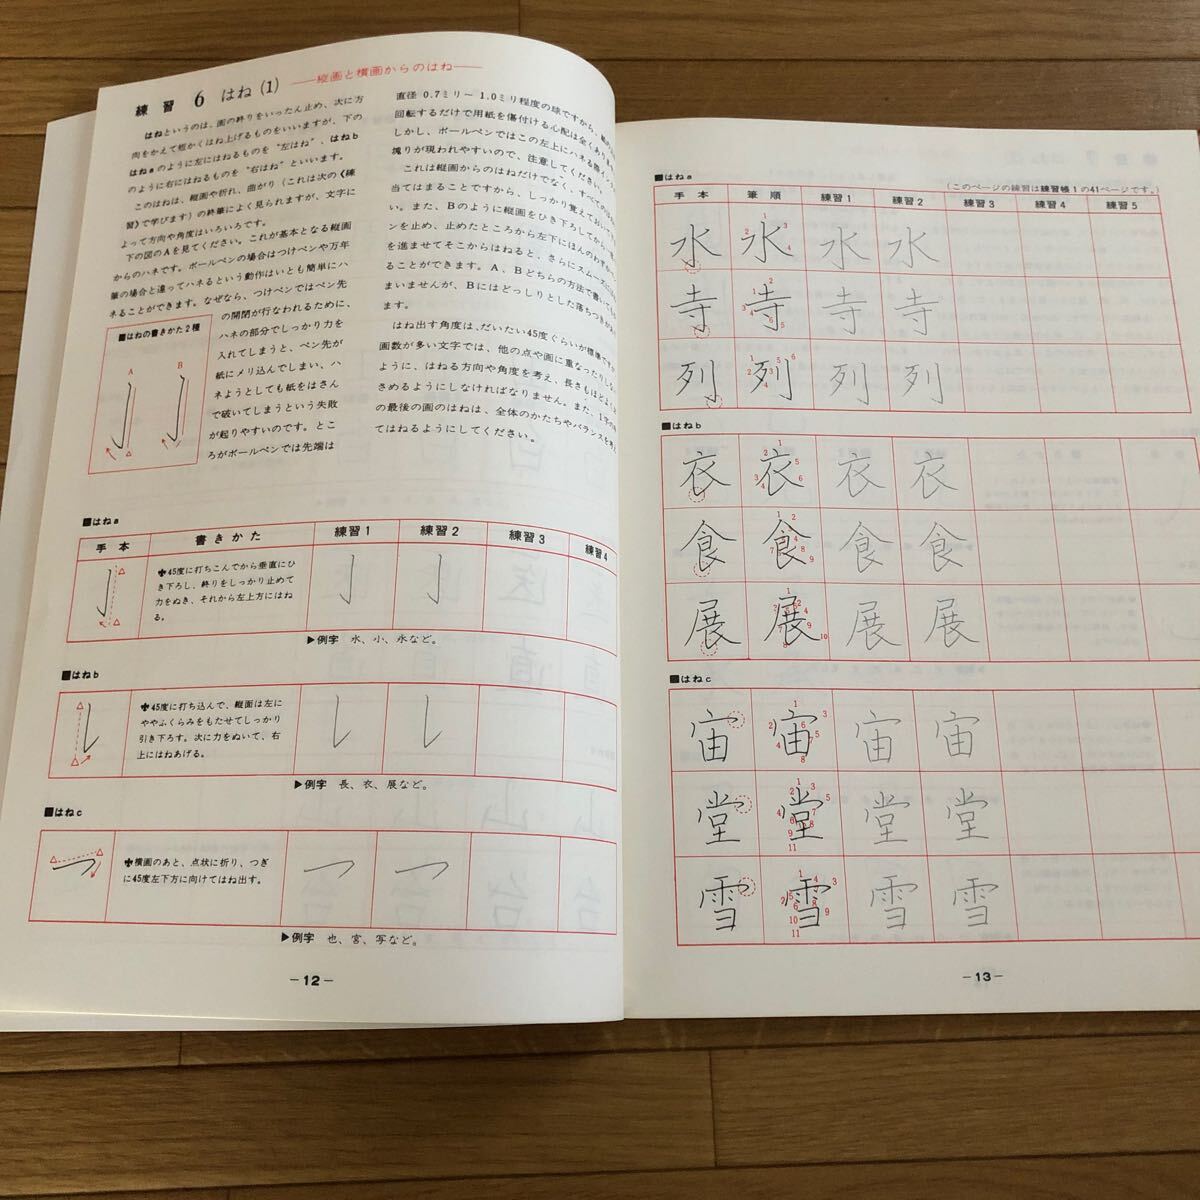 練習 6 はね(1) ——縦画と横画からのはね——
はねというのは、画の終りをいったん止め、次に方
向をかえて短かくはね上げるものをいいますが、下の
はねaのように左にはねるものを“左はね”、はねb
のように右にはねるものを“右はね”といいます。
このはねは、縦画や折れ、曲がり(これは次の〈練
習〉で学びます)の終筆によく見られますが、文字に
よって方向や角度はいろいろです。
下の図のAを見てください。これが基本となる縦画
からのハネです。ボールペンの場合はつけペンや万年
筆の場合と違ってハネるという動作はいとも簡単にハ
ネることができます。なぜなら、つけペンではペン先
の開閉が行なわれるために、
ハネの部分でしっかり力を
入れてしまうと、ペン先が
紙にメリ込んでしまい、ハ
ネようとしても紙をはさん
で破いてしまうという失敗
が起りやすいのです。とこ
ろがボールペンでは先端は
■はねの書きかた2種
A B
直径 0.7ミリー 1.0ミリ程度の球ですから、紙の
回転するだけで用紙を傷付ける心配は全くあり
しかし、ボールペンではこの左上にハネる際イン
塊りが現われやすいので、注意してください。
これは縦画からのはねだけでなく、すべての
当てはまることですから、しっかり覚えておいて
い。また、Bのように縦画をひき下ろしてから
ンを止め、止めたところから左下にほんのわずか
を進ませてそこからはねると、さらにスムーズに
ることができます。A、Bどちらの方法で書いても
まいませんが、Bにはどっしりとした落ちつきが
ます。
はね出す角度は、だいたい45度ぐらいが標準です
画数が多い文字では、他の点や画に重なったりしな
ように、はねる方向や角度を考え、長さもほどよく
さめるようにしなければなりません。また、1字の
の最後の画のはねは、全体のかたちやバランスを考え
てはねるようにしてください。
■はねa
手本 書きかた 練習1 練習2 練習3 練習4
✚45度に打ちこんでから垂直にひ
き下ろし、終りをしっかり止めて
力をぬき、それから左上方にはね
る。
▶例字 水、小、永など。
■はねb
✚45度に打ち込んで、縦画は左に
ややふくらみをもたせてしっかり
引き下ろす。次に力をぬいて、右
上にはねあげる。
▶例字 長、衣、展など。
■はねc
✚横画のあと、点状に折り、つぎ
に45度左下方に向けてはね出す。
▶例字 也、宮、写など。
—12—
■はねa
(このページの練習は練習帳1の41ページです。)
手本 筆順 練習1 練習2 練習3 練習4 練習5
水 水 水 水
寺 寺 寺 寺
列 列 列 列
■はねb
衣 衣 衣 衣
食 食 食 食
展 展 展 展
■はねc
宙 宙 宙 宙
堂 堂 堂 堂
雪 雪 雪 雪
—13—